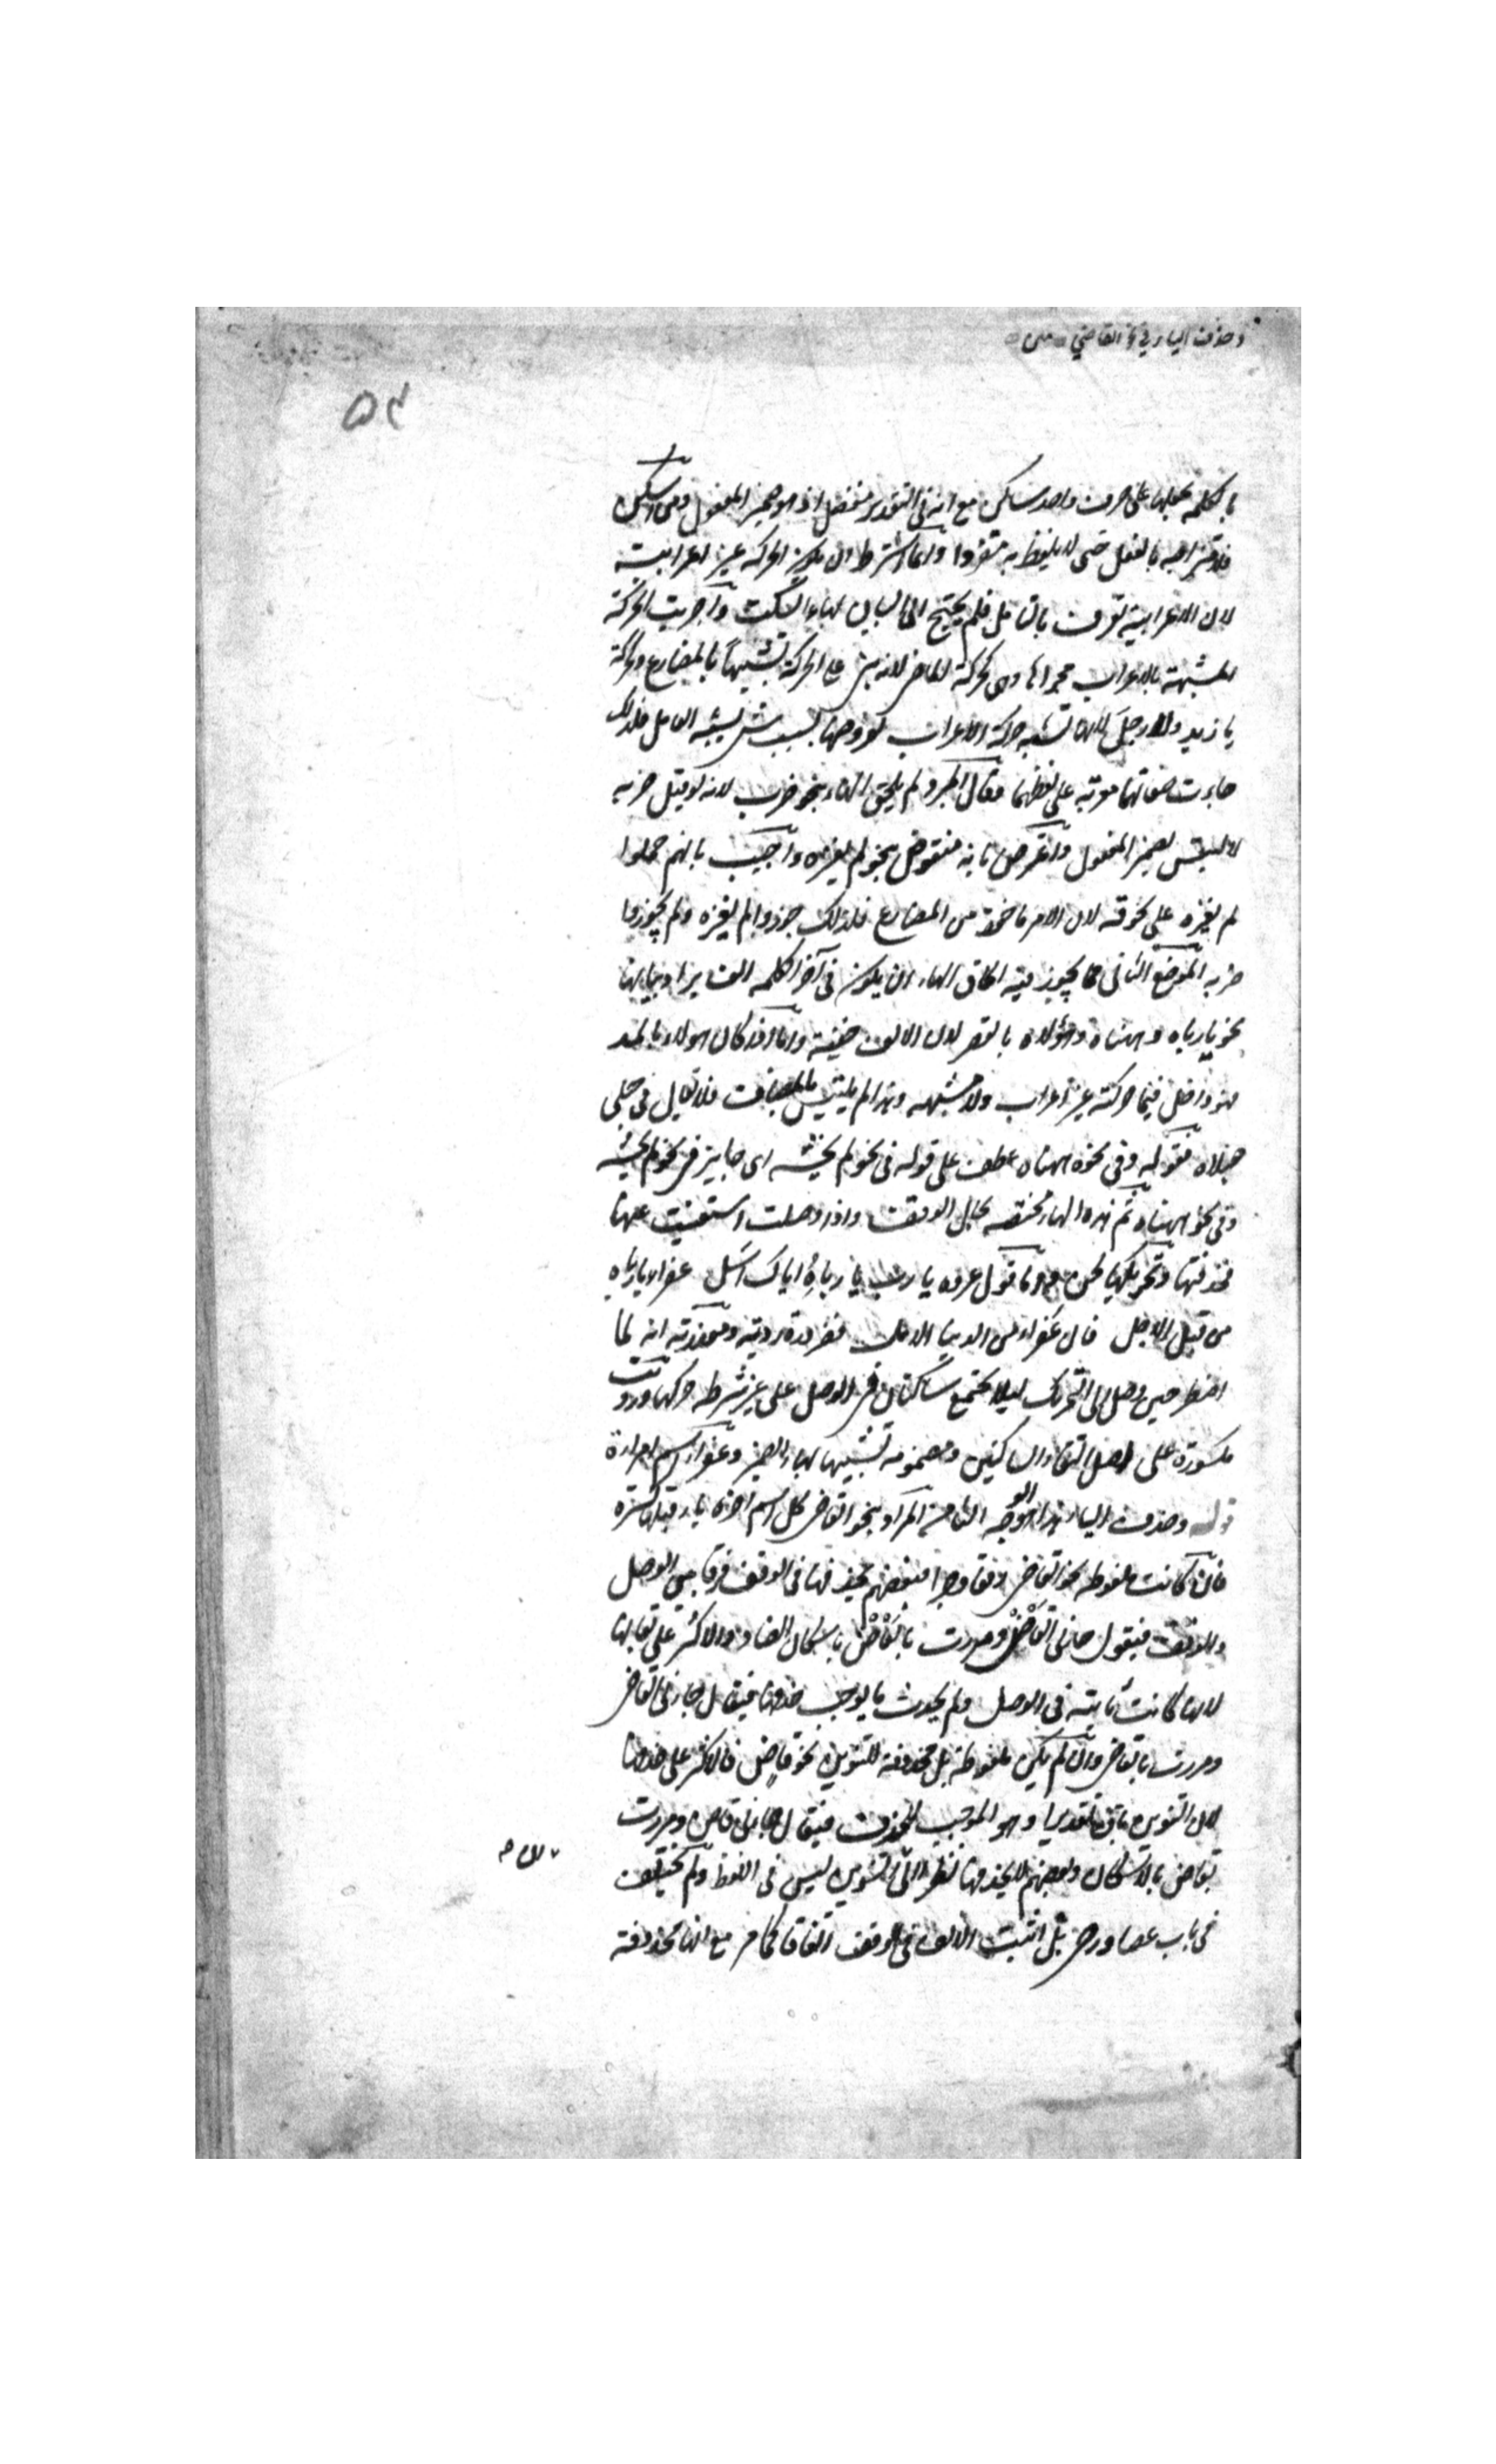 وحذف الياء في نحو القاضي
۵۴
بالكلمة يجعلها على حرف واحد ساكن مع انه في التقدير منفصل اذ هو ضمير المفعول ومن اسكن
فلامتزاجه بالفعل حتى لا يلفظ به منفردا وانما اشترط ان يكون الحركة غير اعرابية
لان الاعرابية تعرف بالعامل فلم يحتج الى البيان بهاء السكت واجريت الحركة
المشبهة بالاعراب مجراها وهي كحركة الماضي لانه بني على الحركة تشبيها بالمضارع وحركة
يا زيد ولا رجل لانها تشبه حركة الاعراب لعروضها بسبب شيء يشبه العامل فلذلك
جاءت صفاتهما معربة على لفظهما فقال اخر ولم يلحق الهاء نحو ضرب لانه لو قيل ضربه
لالتبس بضمير المفعول واعترض بانه منقوض بنحو لم يغزه واجيب بانهم حملوا
لم يغزه على نحو قه لان الامر ماخوذ من المضارع فلذلك جوزوا لم يغزه ولم يجوزوا
ضربه الموضع الثاني مما يجوز فيه الحاق الهاء ان يكون في آخر الكلمة الف يراد بيانها
نحو يا رباه وههناه وهؤلاه بالقصر لان الالف خفية واما اذا كان هولاء بالمد
فهو داخل فيما حركته غير اعراب ولا مشبهه وهذا لم يلتبس بالمضاف فلا يقال في حبلى
حبلاه فقوله وفي نحو ههناه عطف على قوله في نحو لم يخشه اى جايز في نحو لم يخشه
وفي نحو ههناه ثم هذه الهاء مختصة بحال الوقف واذا وصلت استغنيت عنها
فحذفتها وتحريكها لحن واما قول عروه يا رب يا رباه اياك اسل عفراء يا رباه
من قبل الاجل فان عفراء من الدنيا الامل فضرورة ردية ومعذرته انه لما
اضطر حين وصل الى التحريك ليلا يجتمع ساكنان في الوصل على غير شرطه حركها ورويت
مكسورة على اصل التقاء الساكنين ومضمومة تشبيها بهاء الضمير وعفراء اسم امراة
قوله وحذف الياء هذا هو الوجه الثامن المراد بنحو القاضي كل اسم اخره ياء قبلها كسرة
فان كانت ملفوظه نحو القاضي رفعا وجرا فبعضهم يحذفها في الوقف فرقا بين الوصل
والوقف فيقول جاءني القاض ومررت بالقاض باسكان الضاد والاكثر على بقائها
لانها كانت ثابتة في الوصل ولم يحدث ما يوجب حذفها فيقال جاءني القاضي
ومررت بالقاضي وان لم يكن ملفوظة بل محذوفة للتنوين نحو قاض فالاكثر على حذفها
لان التنوين باق تقديرا وهو الموجب للحذف فيقال جاءني قاض ومررت
بقاض بالاسكان وبعضهم لا يحذفها نظرا الى ان التنوين ليس في اللفظ ولم يختلف
في باب عصا ورحى بل اثبت الالف في الوقف اتفاقا كما مر مع انها محذوفة